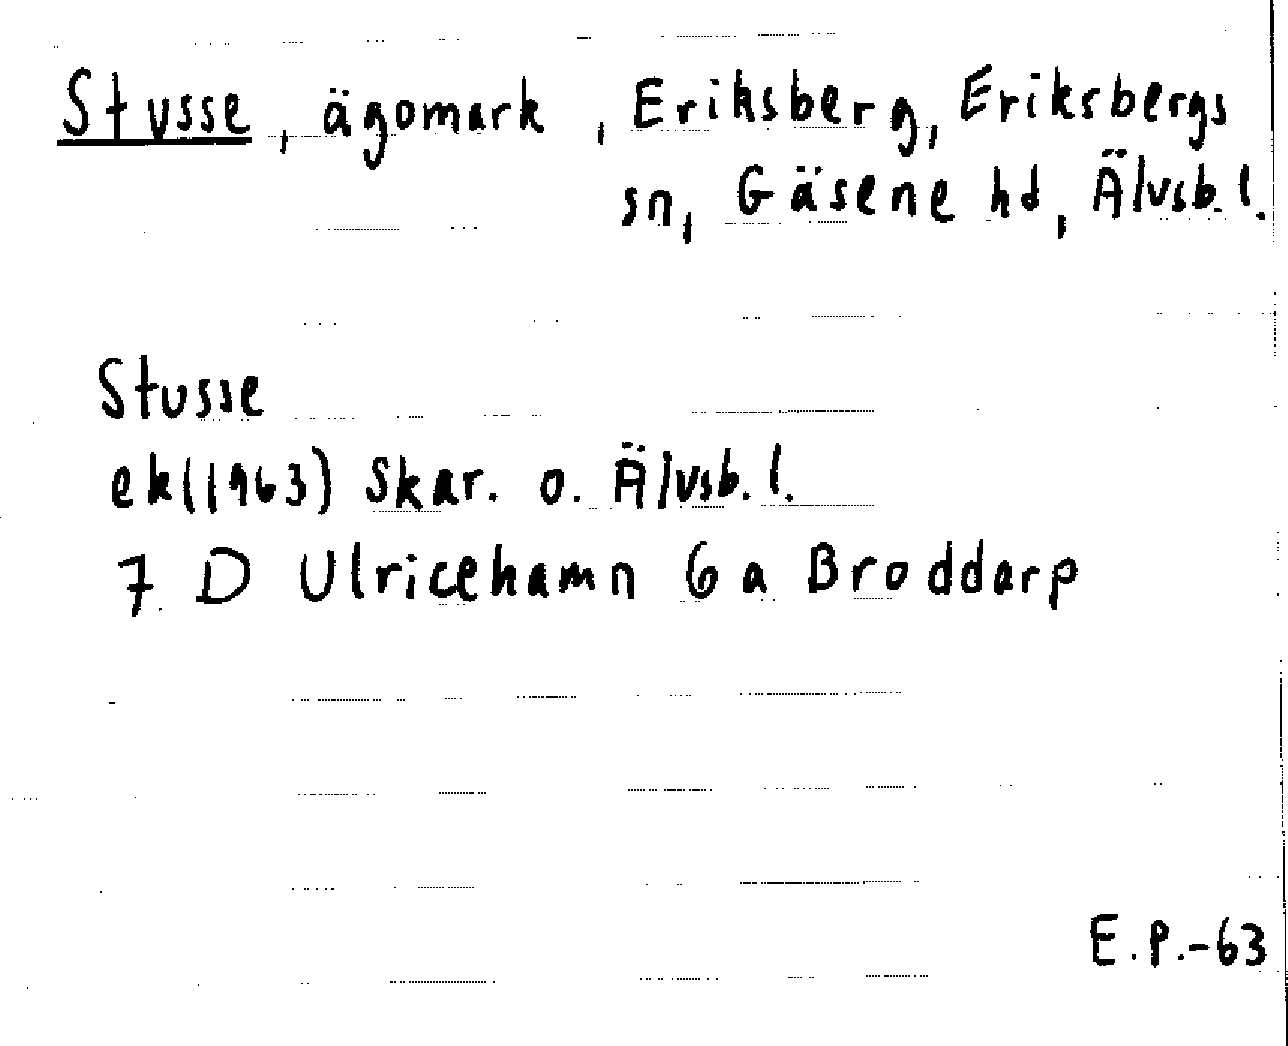 Stusse, ägomark, Eriksberg, Eriksbergs
sn, Gäsene hd, Älvsb. l.
Stusse
ek (1963) Skar. o. Älvsb. l.
7 D Ulricehamn 6 a Broddarp
E.P.-63